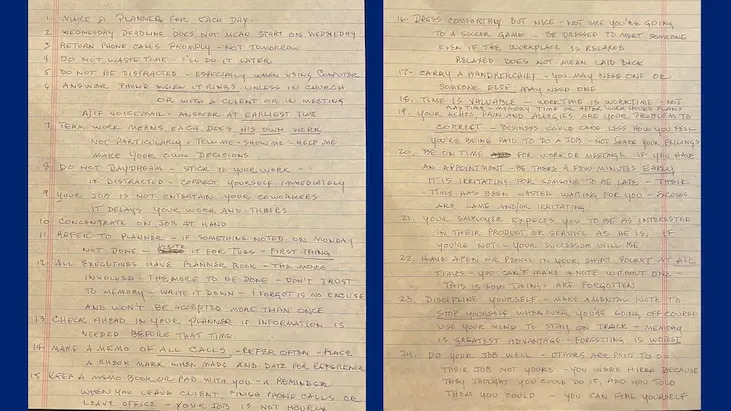 1. MAKE A PLANNER FOR EACH DAY
2 WEDNESDAY DEADLINE DOES NOT MEAN START ON WEDNESDAY
3 RETURN PHONE CALLS PROMPLY - NOT TOMORROW
4 DO NOT WASTE TIME - I'LL DO IT LATER
5 DO NOT BE DISTRACTED - ESPECIALLY WHEN USING COMPUTOR
6 ANSWER PHONE WHEN IT RINGS UNLESS IN CHURCH
OR WITH A CLIENT OR IN MEETING
A) IF VOICEMAIL - ANSWER AT EARLIEST TIME
7 TEAM WORK MEANS EACH DOES HIS OWN WORK
NOT PARTICULARLY - TELL ME - SHOW ME - HELP ME
MAKE YOUR OWN DECISIONS
8 DO NOT DAYDREAM - STICK TO YOUR WORK -
IF DISTRACTED - CORRECT YOURSELF IMMEDIATELY
9 YOUR JOB IS NOT ENTERTAIN YOUR COWORKERS
IT DELAYS YOUR WORK AND THEIRS
10 CONCENTRATE ON JOB AT HAND
11 REFER TO PLANNER - IF SOMETHING NOTED ON MONDAY
NOT DONE - WRITE IT FOR TUES - FIRST THING
12 ALL EXECUTIVES HAVE PLANNER BOOK - THE MORE
INVOLVED - THE MORE TO BE DONE - DON'T TRUST
TO MEMORY - WRITE IT DOWN - I FORGOT IS NO EXCUSE
AND WON'T BE ACCEPTED MORE THAN ONCE
13 CHECK AHEAD IN YOUR PLANNER IF INFORMATION IS
NEEDED BEFORE THAT TIME
14 MAKE A MEMO OF ALL CALLS - REFER OFTEN - PLACE
A CHECK MARK WHEN MADE AND DATE FOR REFERENCE
15 KEEP A MEMO BOOK OR PAD WITH YOU - A REMINDER
WHEN YOU LEAVE CLIENT, FINISH PHONE CALLS OR
LEAVE OFFICE - YOUR JOB IS NOT HOURLY
16 DRESS COMFORTBLY BUT NICE - NOT LIKE YOU'RE GOING
TO A SOCCER GAME - BE DRESSED TO MEET SOMEONE
EVEN IF THE WORKPLACE IS RELAXED
RELAXED DOES NOT MEAN LAID BACK
17- CARRY A HANDKERCHIEF - YOU MAY NEED ONE OR
SOMEONE ELSE MAY NEED ONE
18. TIME IS VALUABLE - WORKTIME IS WORKTIME - NOT
PLAYTIME - MEMORY TIME OR AFTER WORK HOURS PLANS
19. YOUR ACHES, PAIN AND ALLERGIES ARE YOUR PROBLEM TO
CORRECT - BUSINESS COULD CARE LESS HOW YOU FEEL
YOU'RE BEING PAID TO DO A JOB - NOT SHARE YOUR FEELINGS
20. BE ON TIME FOR WORK OR MEETINGS. IF YOU HAVE
AN APPOINTMENT - BE THERE A FEW MINUTES EARLY
IT IS IRRITATING FOR SOMEONE TO BE LATE - THEIR
TIME HAS BEEN WASTED WAITING FOR YOU - EXCUSES
ARE LAME AND/OR IRRITATING
21. YOUR EMPLOYER EXPECTS YOU TO BE AS INTERESTED
IN THEIR PRODUCT OR SERVICE AS HE IS, IF
YOU'RE NOT - YOUR SUCCESSOR WILL BE
22. HAVE A PEN OR PENCIL IN YOUR SHIRT POCKET AT ALL
TIMES - YOU CAN'T MAKE A NOTE WITHOUT ONE -
THIS IS HOW THINGS ARE FORGOTTEN
23. DISCIPLINE YOURSELF - MAKE A MENTAL NOTE TO
STOP YOURSELF WHENEVER YOU'RE GOING OFF COURSE
USE YOUR MIND TO STAY ON TRACK - MEMORY
IS GREATEST ADVANTAGE - FORGETTING IS WORST
24. DO YOUR JOB WELL - OTHERS ARE PAID TO DO
THEIR JOB NOT YOURS - YOU WERE HIRED BECAUSE
THEY THOUGHT YOU COULD DO IT, AND YOU TOLD
THEM YOU COULD - YOU CAN FIRE YOURSELF